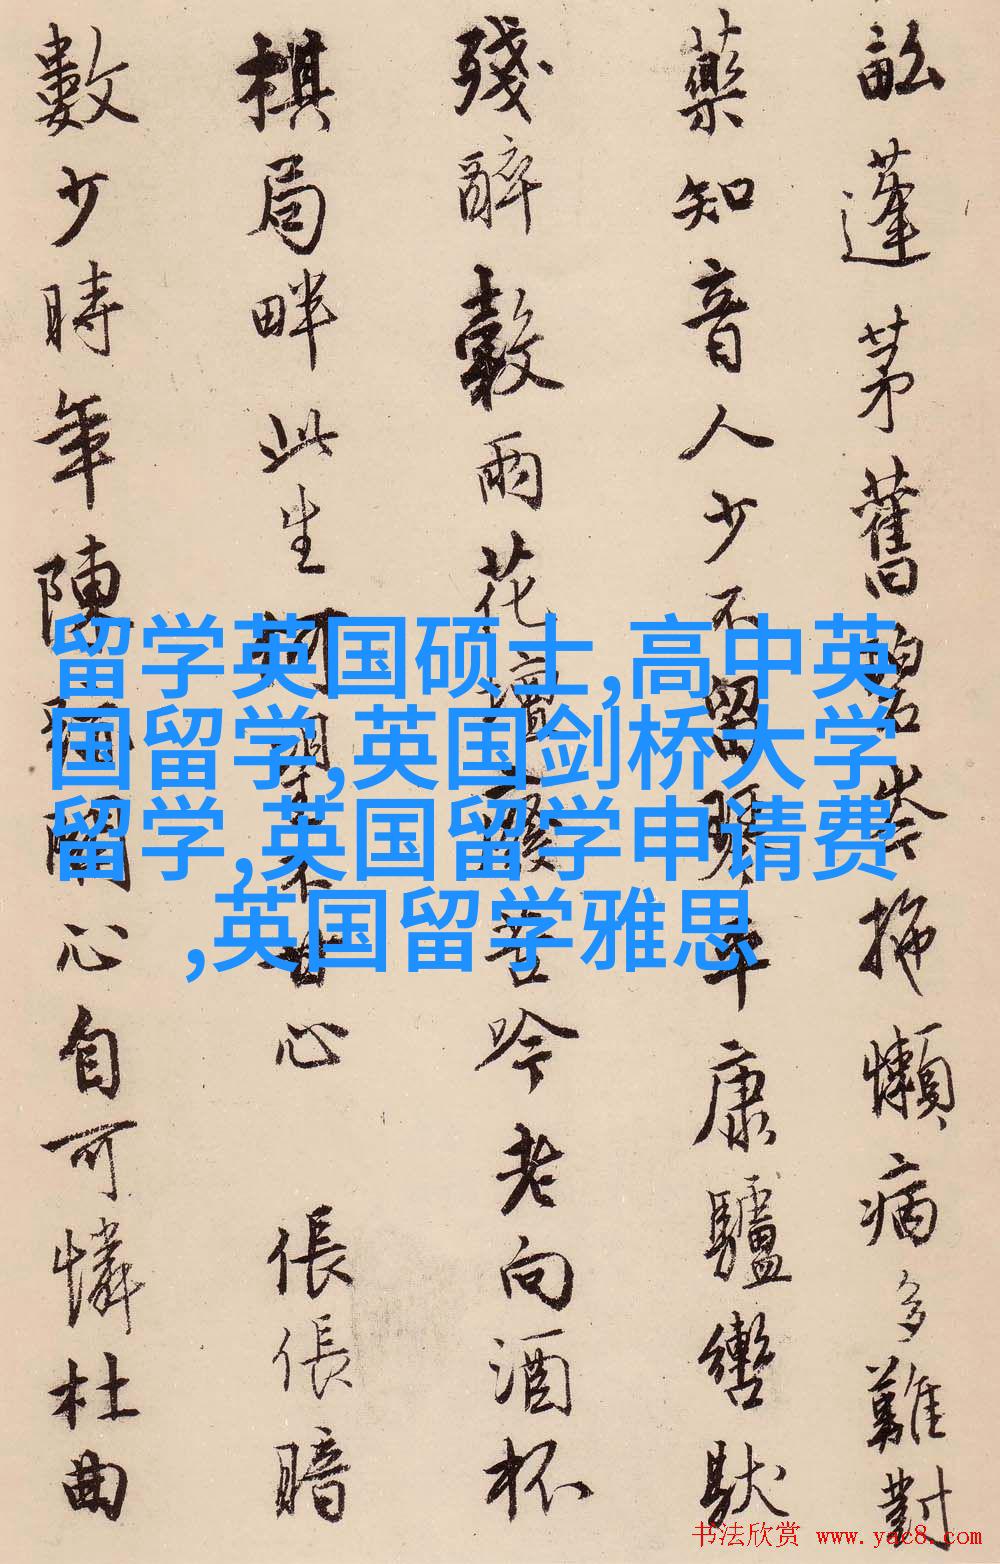 畝蓬茅舊碧岑拖懶病多難對
藥知音人少不留琴年康驢轡馱
殘醉穀雨花壇苦吟老向酒杯
棋局畔此生何不甘心 悵悵暗
數少時年陳關心自可憐杜曲
留学英国硕士,高中英
国留学,英国剑桥大学
留学,英国留学申请费
,英国留学雅思
书法欣赏 www.yac8.com